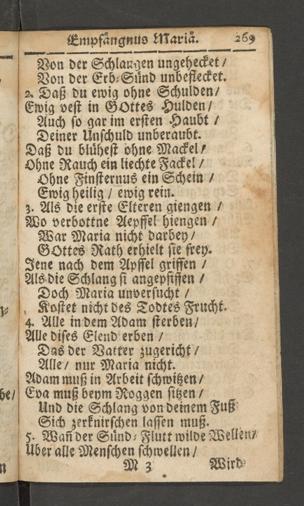 Empfängnus Mariä. 269
Von der Schlangen ungehecket /
Von der Erb-Sünd unbeflecket.
2. Daß du ewig ohne Schulden /
Ewig vest in GOttes Hulden /
Auch so gar im ersten Haubt /
Deiner Unschuld unberaubt.
Daß du blühest ohne Mackel /
Ohne Rauch ein liechte Fackel /
Ohne Finsternus ein Schein /
Ewig heilig / ewig rein.
3. Als die erste Elteren giengen /
Wo verbottne Aepffel hiengen /
War Maria nicht darbey /
GOttes Rath erhielt sie frey.
Jene nach dem Apffel griffen /
Als die Schlang si angepfiffen /
Doch Maria unversucht /
Kostet nicht des Todtes Frucht.
4. Alle in dem Adam sterben /
Alle dises Elend erben /
Das der Vatter zugericht /
Alle / nur Maria nicht.
Adam muß in Arbeit schwitzen /
Eva muß beym Roggen sitzen /
Und die Schlang von deinem Fuß
Sich zerknirschen lassen muß.
5. Wañ der Sünd-Flutt wilde Wellen /
Uber alle Menschen schwellen /
M 3 Wird